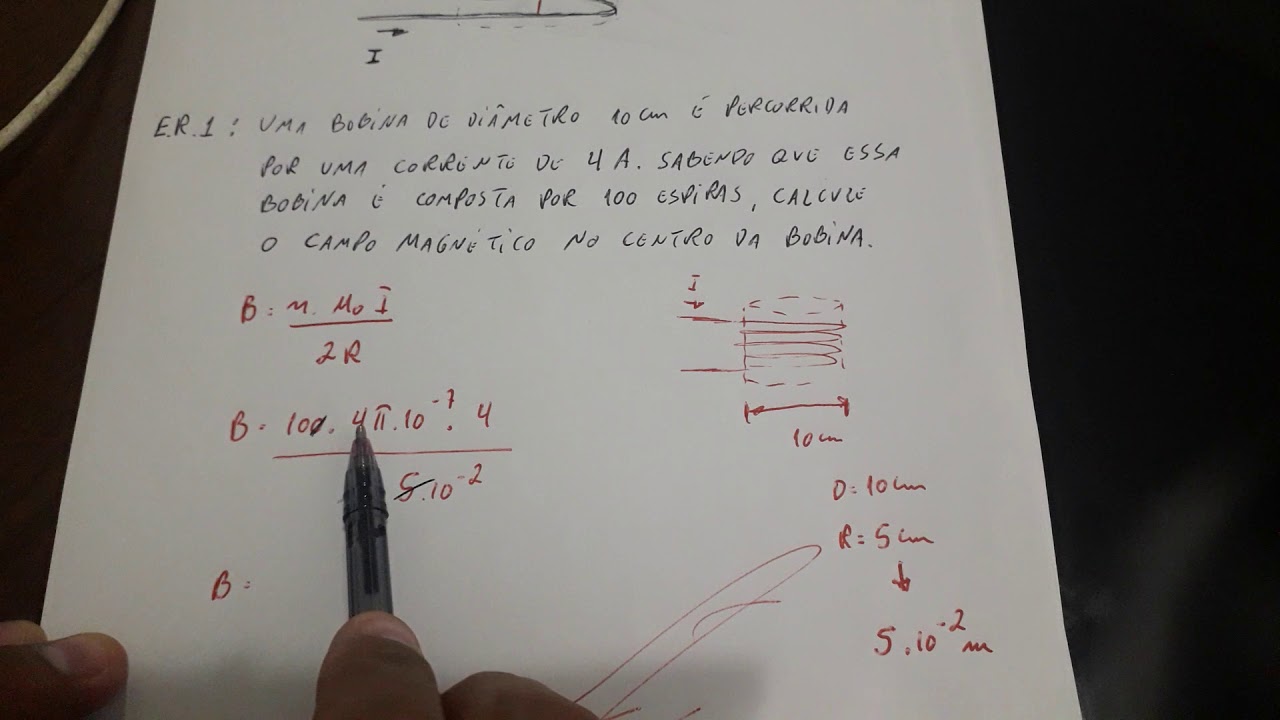 I
E.R.1: UMA BOBINA DE DIÂMETRO 10 cm É PERCORRIDA
POR UMA CORRENTE DE 4 A. SABENDO QUE ESSA
BOBINA É COMPOSTA POR 100 ESPIRAS, CALCULE
O CAMPO MAGNÉTICO NO CENTRO DA BOBINA.
B = n. μ₀ I
2R
I
B = 100. 4π.10⁻⁷. 4
5.10⁻²
10 cm
D = 10 cm
R = 5 cm
5.10⁻² m
B =